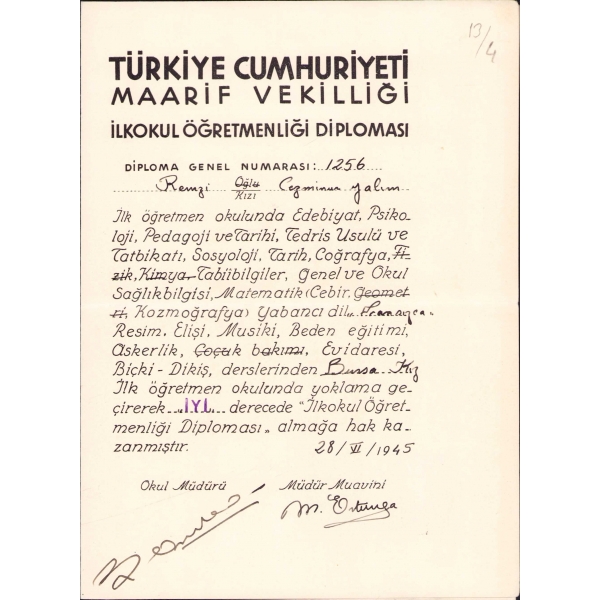 13/4
TÜRKİYE CUMHURİYETİ
MAARİF VEKİLLİĞİ
İLKOKUL ÖĞRETMENLİĞİ DİPLOMASI
DİPLOMA GENEL NUMARASI: 1256
Remzi Oğlu Kızı Cezminur Yalım
İlk öğretmen okulunda Edebiyat, Psiko-
loji, Pedagoji ve Tarihi, Tedris Usulü ve
Tatbikatı, Sosyoloji, Tarih, Coğrafya, Fi-
zik, Kimya, Tabiibilgiler, Genel ve Okul
Sağlıkbilgisi, Matematik (Cebir, Geomet-
ri, Kozmoğrafya) Yabancı dil Fransızca
Resim, Elişi, Musiki, Beden eğitimi,
Askerlik, Çocuk bakımı, Evidaresi,
Biçki - Dikiş, derslerinden Bursa Kız
İlk öğretmen okulunda yoklama ge-
çirerek „İYİ„ derecede "İlkokul Öğret-
menliği Diploması„ almağa hak ka-
zanmıştır. 28/VI/1945
Okul Müdürü Müdür Muavini
M. Ertunga